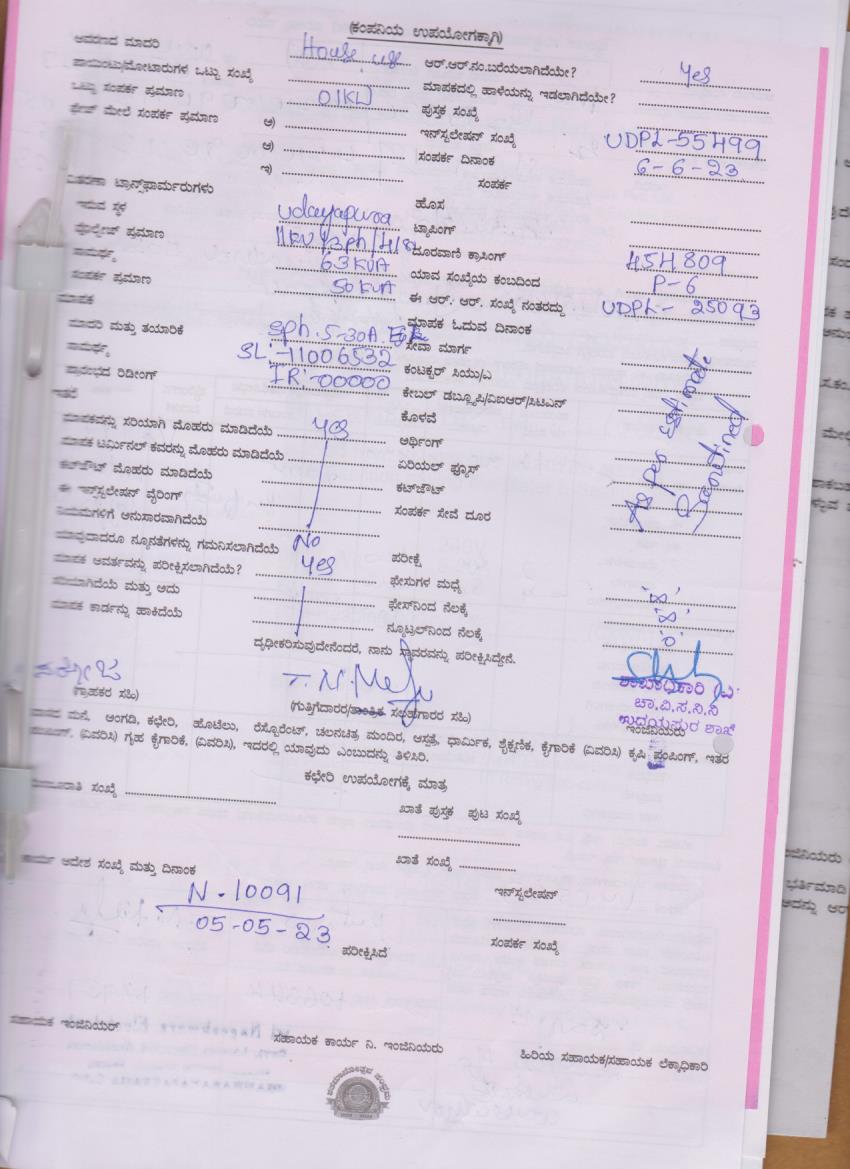 (ಕಂಪನಿಯ ಉಪಯೋಗಕ್ಕಾಗಿ)
ಆವರಣದ ಮಾದರಿ House use ಆರ್.ಆರ್.ನಂ.ಬರೆಯಲಾಗಿದೆಯೇ? Yes
ಪಾಯಿಂಟು/ಮೋಟಾರುಗಳ ಒಟ್ಟು ಸಂಖ್ಯೆ ಮಾಪಕದಲ್ಲಿ ಹಾಳೆಯನ್ನು ಇಡಲಾಗಿದೆಯೇ?
ಒಟ್ಟು ಸಂಪರ್ಕ ಪ್ರಮಾಣ 01KW ಪುಸ್ತಕ ಸಂಖ್ಯೆ
ಫೇಸ್ ಮೇಲೆ ಸಂಪರ್ಕ ಪ್ರಮಾಣ ಅ) ಇನ್‌ಸ್ಟಲೇಷನ್ ಸಂಖ್ಯೆ UDPL-55499
ಆ) ಸಂಪರ್ಕ ದಿನಾಂಕ 6-6-23
ಇ) ಸಂಪರ್ಕ
ವಿತರಣಾ ಟ್ರಾನ್ಸ್‌ಫಾರ್ಮರುಗಳು
ಇರುವ ಸ್ಥಳ Udayapura ಹೊಸ
ವೋಲ್ಟೇಜ್ ಪ್ರಮಾಣ 11KV/3ph/ ಟ್ಯಾಪಿಂಗ್
ಸಾಮರ್ಥ್ಯ 63KVA ದೂರವಾಣಿ ಕ್ರಾಸಿಂಗ್ 454809
ಸಂಪರ್ಕ ಪ್ರಮಾಣ 50KVA ಯಾವ ಸಂಖ್ಯೆಯ ಕಂಬದಿಂದ P-6
ಮಾಪಕ ಈ ಆರ್. ಆರ್. ಸಂಖ್ಯೆ ನಂತರದ್ದು UDPL- 25093
ಮಾದರಿ ಮತ್ತು ತಯಾರಿಕೆ Sph. 5-30A. ಮಾಪಕ ಓದುವ ದಿನಾಂಕ
ಸಾಮರ್ಥ್ಯ SL:-11006532 ಸೇವಾ ಮಾರ್ಗ
ಪ್ರಾರಂಭದ ರಿಡೀಂಗ್ IR:-00000 ಕಂಟಕ್ಟರ್ ಸಿಯು/ಎ
ಇತರೆ ಕೇಬಲ್ ಡಬ್ಲ್ಯೂಪಿ/ವಿಐಆರ್/ಸಿಟಿಎನ್
ಮಾಪಕವನ್ನು ಸರಿಯಾಗಿ ಮೊಹರು ಮಾಡಿದೆಯೆ Yes ಕೊಳವೆ
ಮಾಪಕ ಟರ್ಮಿನಲ್ ಕವರನ್ನು ಮೊಹರು ಮಾಡಿದೆಯೆ ಅರ್ಥಿಂಗ್
ಕಟ್‌ಜೌಟ್ ಮೊಹರು ಮಾಡಿದೆಯೆ ಏರಿಯಲ್ ಫ್ಯೂಸ್
ಈ ಇನ್‌ಸ್ಟಲೇಷನ್ ವೈರಿಂಗ್ ಕಟ್‌ಜೌಟ್
ನಿಯಮಗಳಿಗೆ ಅನುಸಾರವಾಗಿದೆಯೆ ಸಂಪರ್ಕ ಸೇವೆ ದೂರ
As per Estimate
Sanctined
ಯಾವುದಾದರೂ ನ್ಯೂನತೆಗಳನ್ನು ಗಮನಿಸಲಾಗಿದೆಯೆ No
ಮಾಪಕ ಆವರ್ತವನ್ನು ಪರೀಕ್ಷಿಸಲಾಗಿದೆಯೆ? Yes ಪರೀಕ್ಷೆ
ಸರಿಯಾಗಿದೆಯೆ ಮತ್ತು ಅದು ಫೇಸುಗಳ ಮಧ್ಯೆ
ಮಾಪಕ ಕಾರ್ಡನ್ನು ಹಾಕಿದೆಯೆ ಫೇಸ್‌ನಿಂದ ನೆಲಕ್ಕೆ
ನ್ಯೂಟ್ರಲ್‌ನಿಂದ ನೆಲಕ್ಕೆ
ದೃಢೀಕರಿಸುವುದೇನೆಂದರೆ, ನಾನು ಸ್ಥಾವರವನ್ನು ಪರೀಕ್ಷಿಸಿದ್ದೇನೆ.
(ಗ್ರಾಹಕರ ಸಹಿ) (ಗುತ್ತಿಗೆದಾರರ/ತಾಂತ್ರಿಕ ಸಲಹಾಗಾರರ ಸಹಿ)
ಶಾಖಾಧಿಕಾರಿ
ಚಾ.ವಿ.ಸ.ನಿ.ನಿ
ಉದಯಪುರ ಶಾಖೆ
ಇಂಜಿನಿಯರು
ವಾಸದ ಮನೆ, ಅಂಗಡಿ, ಕಛೇರಿ, ಹೊಟೆಲು, ರೆಸ್ಟೊರೆಂಟ್, ಚಲನಚಿತ್ರ ಮಂದಿರ, ಆಸ್ಪತ್ರೆ, ಧಾರ್ಮಿಕ, ಶೈಕ್ಷಣಿಕ, ಕೈಗಾರಿಕೆ (ವಿವರಿಸಿ) ಕೃಷಿ ಪಂಪಿಂಗ್, ಇತರ
(ವಿವರಿಸಿ) ಗೃಹ ಕೈಗಾರಿಕೆ, (ವಿವರಿಸಿ), ಇದರಲ್ಲಿ ಯಾವುದು ಎಂಬುದನ್ನು ತಿಳಿಸಿರಿ.
ಕಛೇರಿ ಉಪಯೋಗಕ್ಕೆ ಮಾತ್ರ
ಸಂಖ್ಯೆ ಖಾತೆ ಪುಸ್ತಕ ಪುಟ ಸಂಖ್ಯೆ
ಕಾರ್ಯ ಆದೇಶ ಸಂಖ್ಯೆ ಮತ್ತು ದಿನಾಂಕ ಖಾತೆ ಸಂಖ್ಯೆ
N-10091 ಇನ್‌ಸ್ಟಲೇಷನ್
05-05-23
ಪರೀಕ್ಷಿಸಿದೆ ಸಂಪರ್ಕ ಸಂಖ್ಯೆ
ಸಹಾಯಕ ಇಂಜಿನಿಯರ್ ಸಹಾಯಕ ಕಾರ್ಯ ನಿ. ಇಂಜಿನಿಯರು ಹಿರಿಯ ಸಹಾಯಕ/ಸಹಾಯಕ ಲೆಕ್ಕಾಧಿಕಾರಿ